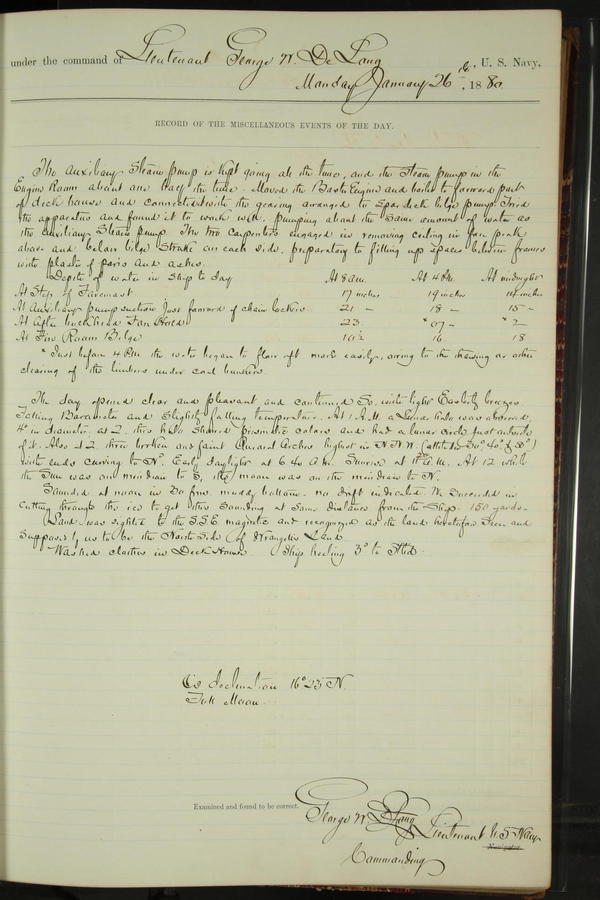 under the command of Lieutenant George W. De Long, U. S. Navy,
Monday January 26th, 1880
RECORD OF THE MISCELLANEOUS EVENTS OF THE DAY.
The Auxiliary Steam pump is kept going all the time, and the Steam pump in the
Engine Room about one half the time. Moved the Baxter Engine and boiler to forward part
of deck house and connected with the gearing arranged to Spar deck bilge pump. Tried
the apparatus and found it to work well, pumping about the same amount of water as
the auxiliary Steam pump. The two carpenters engaged in removing ceiling in fore peak
above and below bilge Strake on each side, preparatory to filling up space between frames
with plaster of paris and ashes.
Depth of water in ship to day At 8 am. At 4 P.M. At midnight
At Step of Foremast 17 inches 19 inches 14 inches
At Auxiliary pump suction just forward of chain lockers 21 " 18 " 15 "
At After bulkhead Fore Hold 23 * 07 " * 2 "
At Fire Room Bilge 16½ 16 18
* Just before 4 P.M. the water began to flow aft more easily, owing to the thawing or other
clearing of the limbers under coal bunkers.
The day opened clear and pleasant and continued so, with light Easterly breezes.
Falling Barometer and slightly falling temperature. At 1 A.M. a Lunar halo was observed
4° in diameter, at 2, this halo showed prismatic colors and had a lunar circle just outside
of it. Also at 2 three broken and faint Auroral Arches highest in N.N.W. (altitudes 30°, 40°, & 80°)
with ends curving to N°. Early daylight at 6.40 A.M. Sunrise at A.M. At 12 while
the Sun was on meridian to S, the moon was on the meridian to N.
Sounded at noon in 30 fms. muddy bottom. no drift indicated. We succeeded in
Cutting through the ice to get this sounding at some distance from the Ship. 150 yards.
Land was sighted to the S.S.E. magnetic and recognized as the land heretofore seen and
Supposed by us to be the North Side of Wrangel's Land.
Washed clothes in Deck House. Ship heeling 3° to Stbd.
☾'s declination 16° 23' N.
Full Moon.
Examined and found to be correct.
George W. De Long Lieutenant U.S. Navy
Navigator.
Commanding